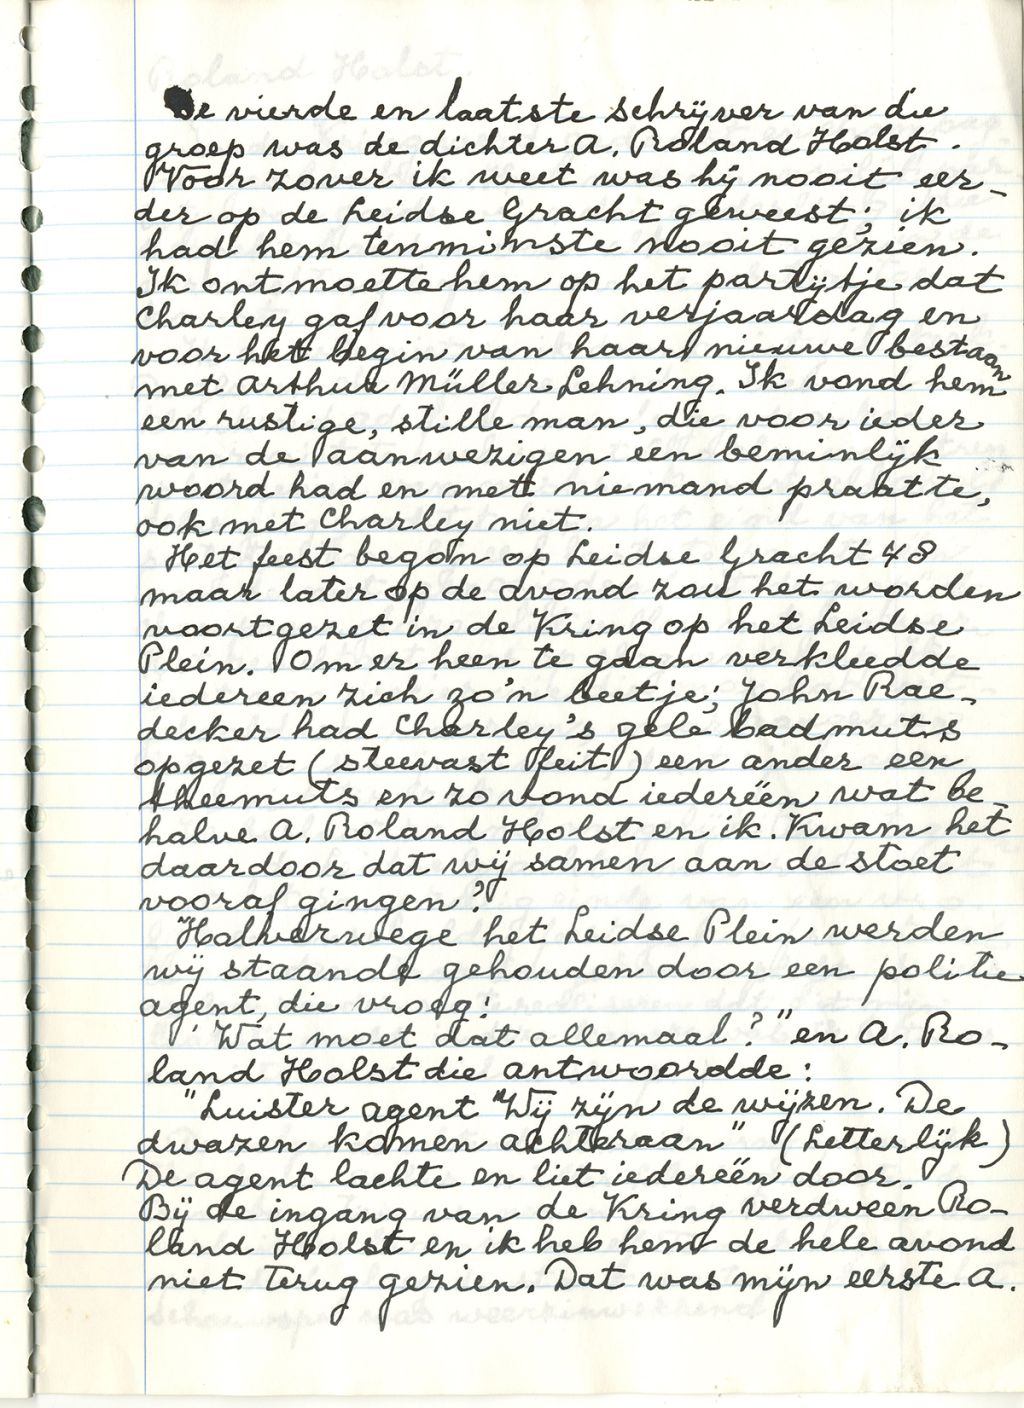 De vierde en laatste schrijver van die
groep was de dichter A. Roland Holst.
Voor zover ik weet was hij nooit eer-
der op de Leidse Gracht geweest; ik
had hem tenminste nooit gezien.
Ik ontmoette hem op het partijtje dat
Charley gaf voor haar verjaardag en
voor het begin van haar nieuwe bestaan
met Arthur Müller Lehning. Ik vond hem
een rustige, stille man, die voor ieder
van de aanwezigen een beminlijk
woord had en met niemand praatte,
ook met Charley niet.
Het feest begon op Leidse Gracht 48
maar later op de avond zou het worden
voortgezet in de Kring op het Leidse
Plein. Om er heen te gaan verkleedde
iedereen zich zo'n beetje; John Rae-
decker had Charley's gele badmuts
opgezet (steevast feit) een ander een
theemuts en zo vond iederéén wat be-
halve A. Roland Holst en ik. Kwam het
daardoor dat wij samen aan de stoet
vooraf gingen?
Halverwege het Leidse Plein werden
wij staande gehouden door een politie
agent, die vroeg:
'Wat moet dat allemaal?" en A. Ro-
land Holst die antwoordde:
"Luister agent "Wij zijn de wijzen. De
dwazen komen achteraan" (Letterlijk)
De agent lachte en liet iederëen door.
Bij de ingang van de Kring verdween Ro-
land Holst en ik heb hem de hele avond
niet terug gezien. Dat was mijn eerste A.